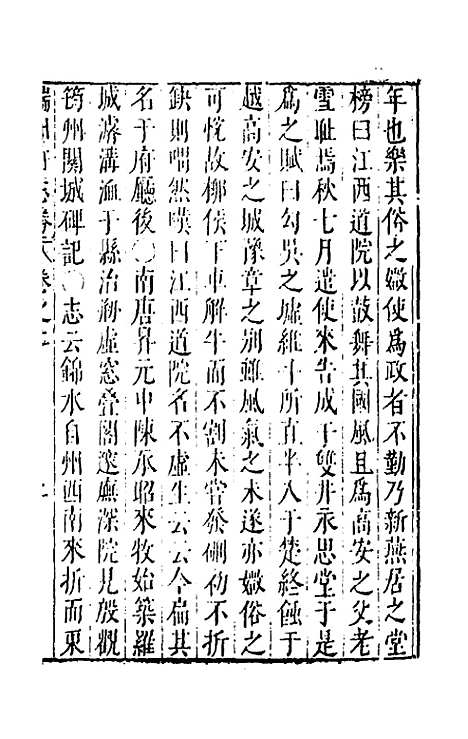 年也樂其俗之媺使爲政者不勤乃新燕居之堂
榜曰江西道院以鼓舞其國風且爲高安之父老
雪耻焉秋七月遣使來告成于雙井永思堂于是
爲之賦曰勾吳之墟維斗所直半入于楚終蝕于
越高安之城豫章之別雖風氣之未遂亦媺俗之
可悅故柳侯下車解牛而不割未嘗發硎初不折
缺則喟然嘆曰江西道院名不虛生云云今扁其
名于府廳後〇南唐昇元中陳承昭來牧始築羅
城濬溝洫于縣治剏虛窓疊閣邃廡深院見殷觀
筠州開城碑記〇志云錦水自州西南來折而東
瑞州府志卷 卷之